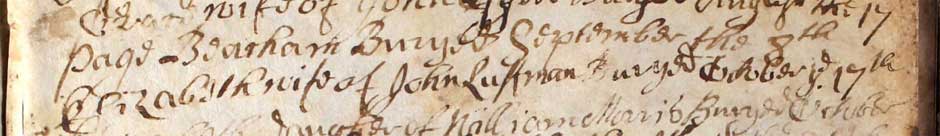 wife of John
Page Bearham Buryed September the 8th
Elizabeth wife of John Luffman Buryed October ye 17th
daughter of Wallicom Morris Buryed Octobe